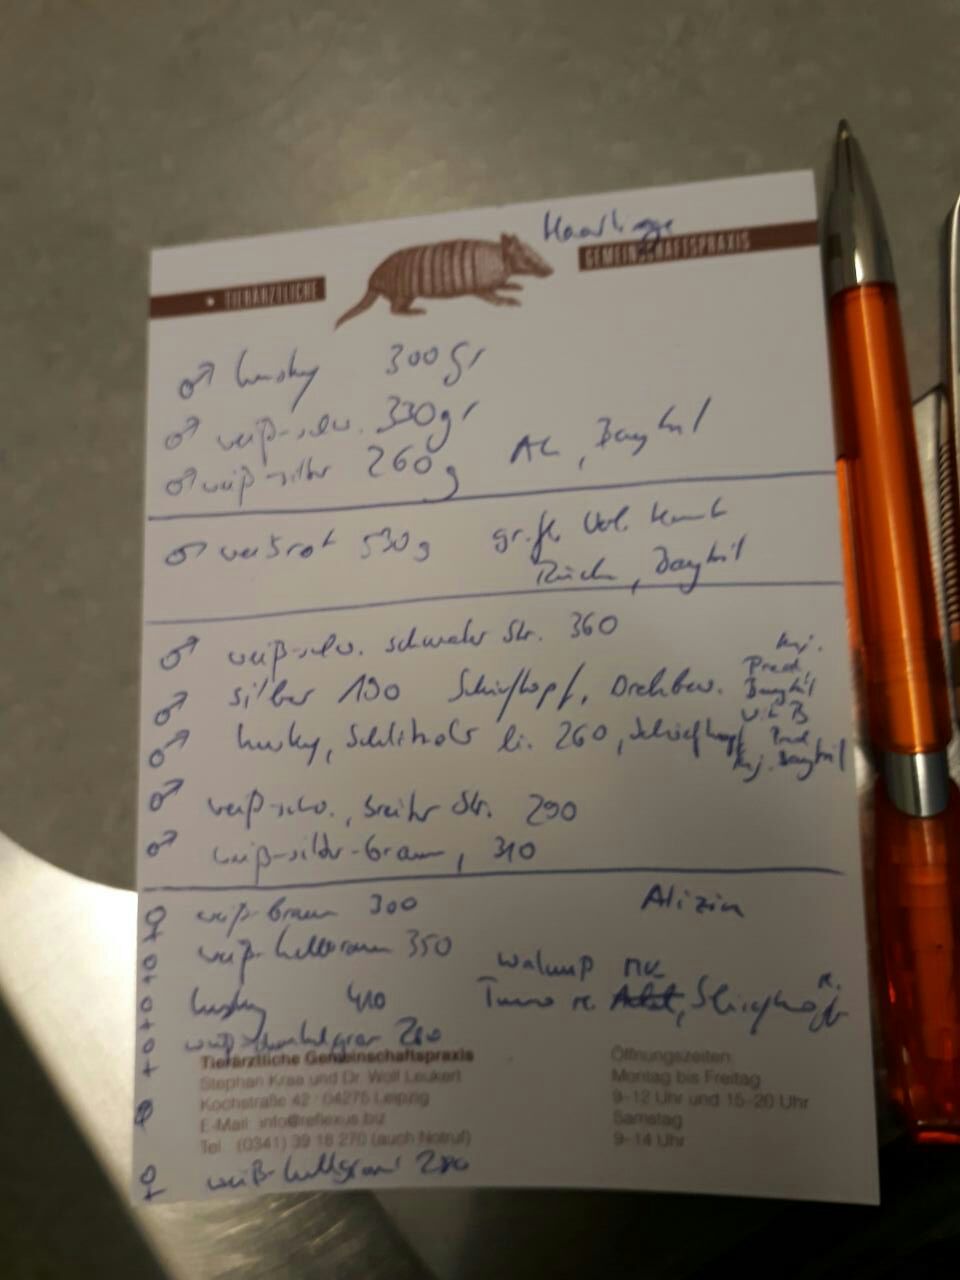 Haarlinge
TIERÄRZTLICHE GEMEINSCHAFTSPRAXIS
♂ husky 300gr
♂ weiß-schw. 330gr
♂ weiß-silber 260g Aa, Baytril
♂ weiß rot 530g gr. fl.
Baytril
♂ weiß-schw. schmaler Str. 360
Inj.
Pred.
♂ silber 190 Schiefkopf, Drehbew. Baytril
Vit B
♂ husky, Schlitzohr li. 260, Schiefkopf Pred
Inj. Baytril
♂ weiß-schw., breiter Str. 290
♂ weiß-silber-braun, 310
♀ weiß-braun 300 Alizin
♀ weiß-hellbraun 350
♀ husky 410 Tumor re. Schiefkopf
♀ weiß-dunkelgrau 280
Tierärztliche Gemeinschaftspraxis
Stephan Kras und Dr. Wolf Leukert
Kochstraße 42 · 04275 Leipzig
E-Mail info@reflexus.biz
Tel. (0341) 39 18 270 (auch Notruf)
Öffnungszeiten:
Montag bis Freitag
9-12 Uhr und 15-20 Uhr
Samstag
9-14 Uhr
♀ weiß-hellgrau 280